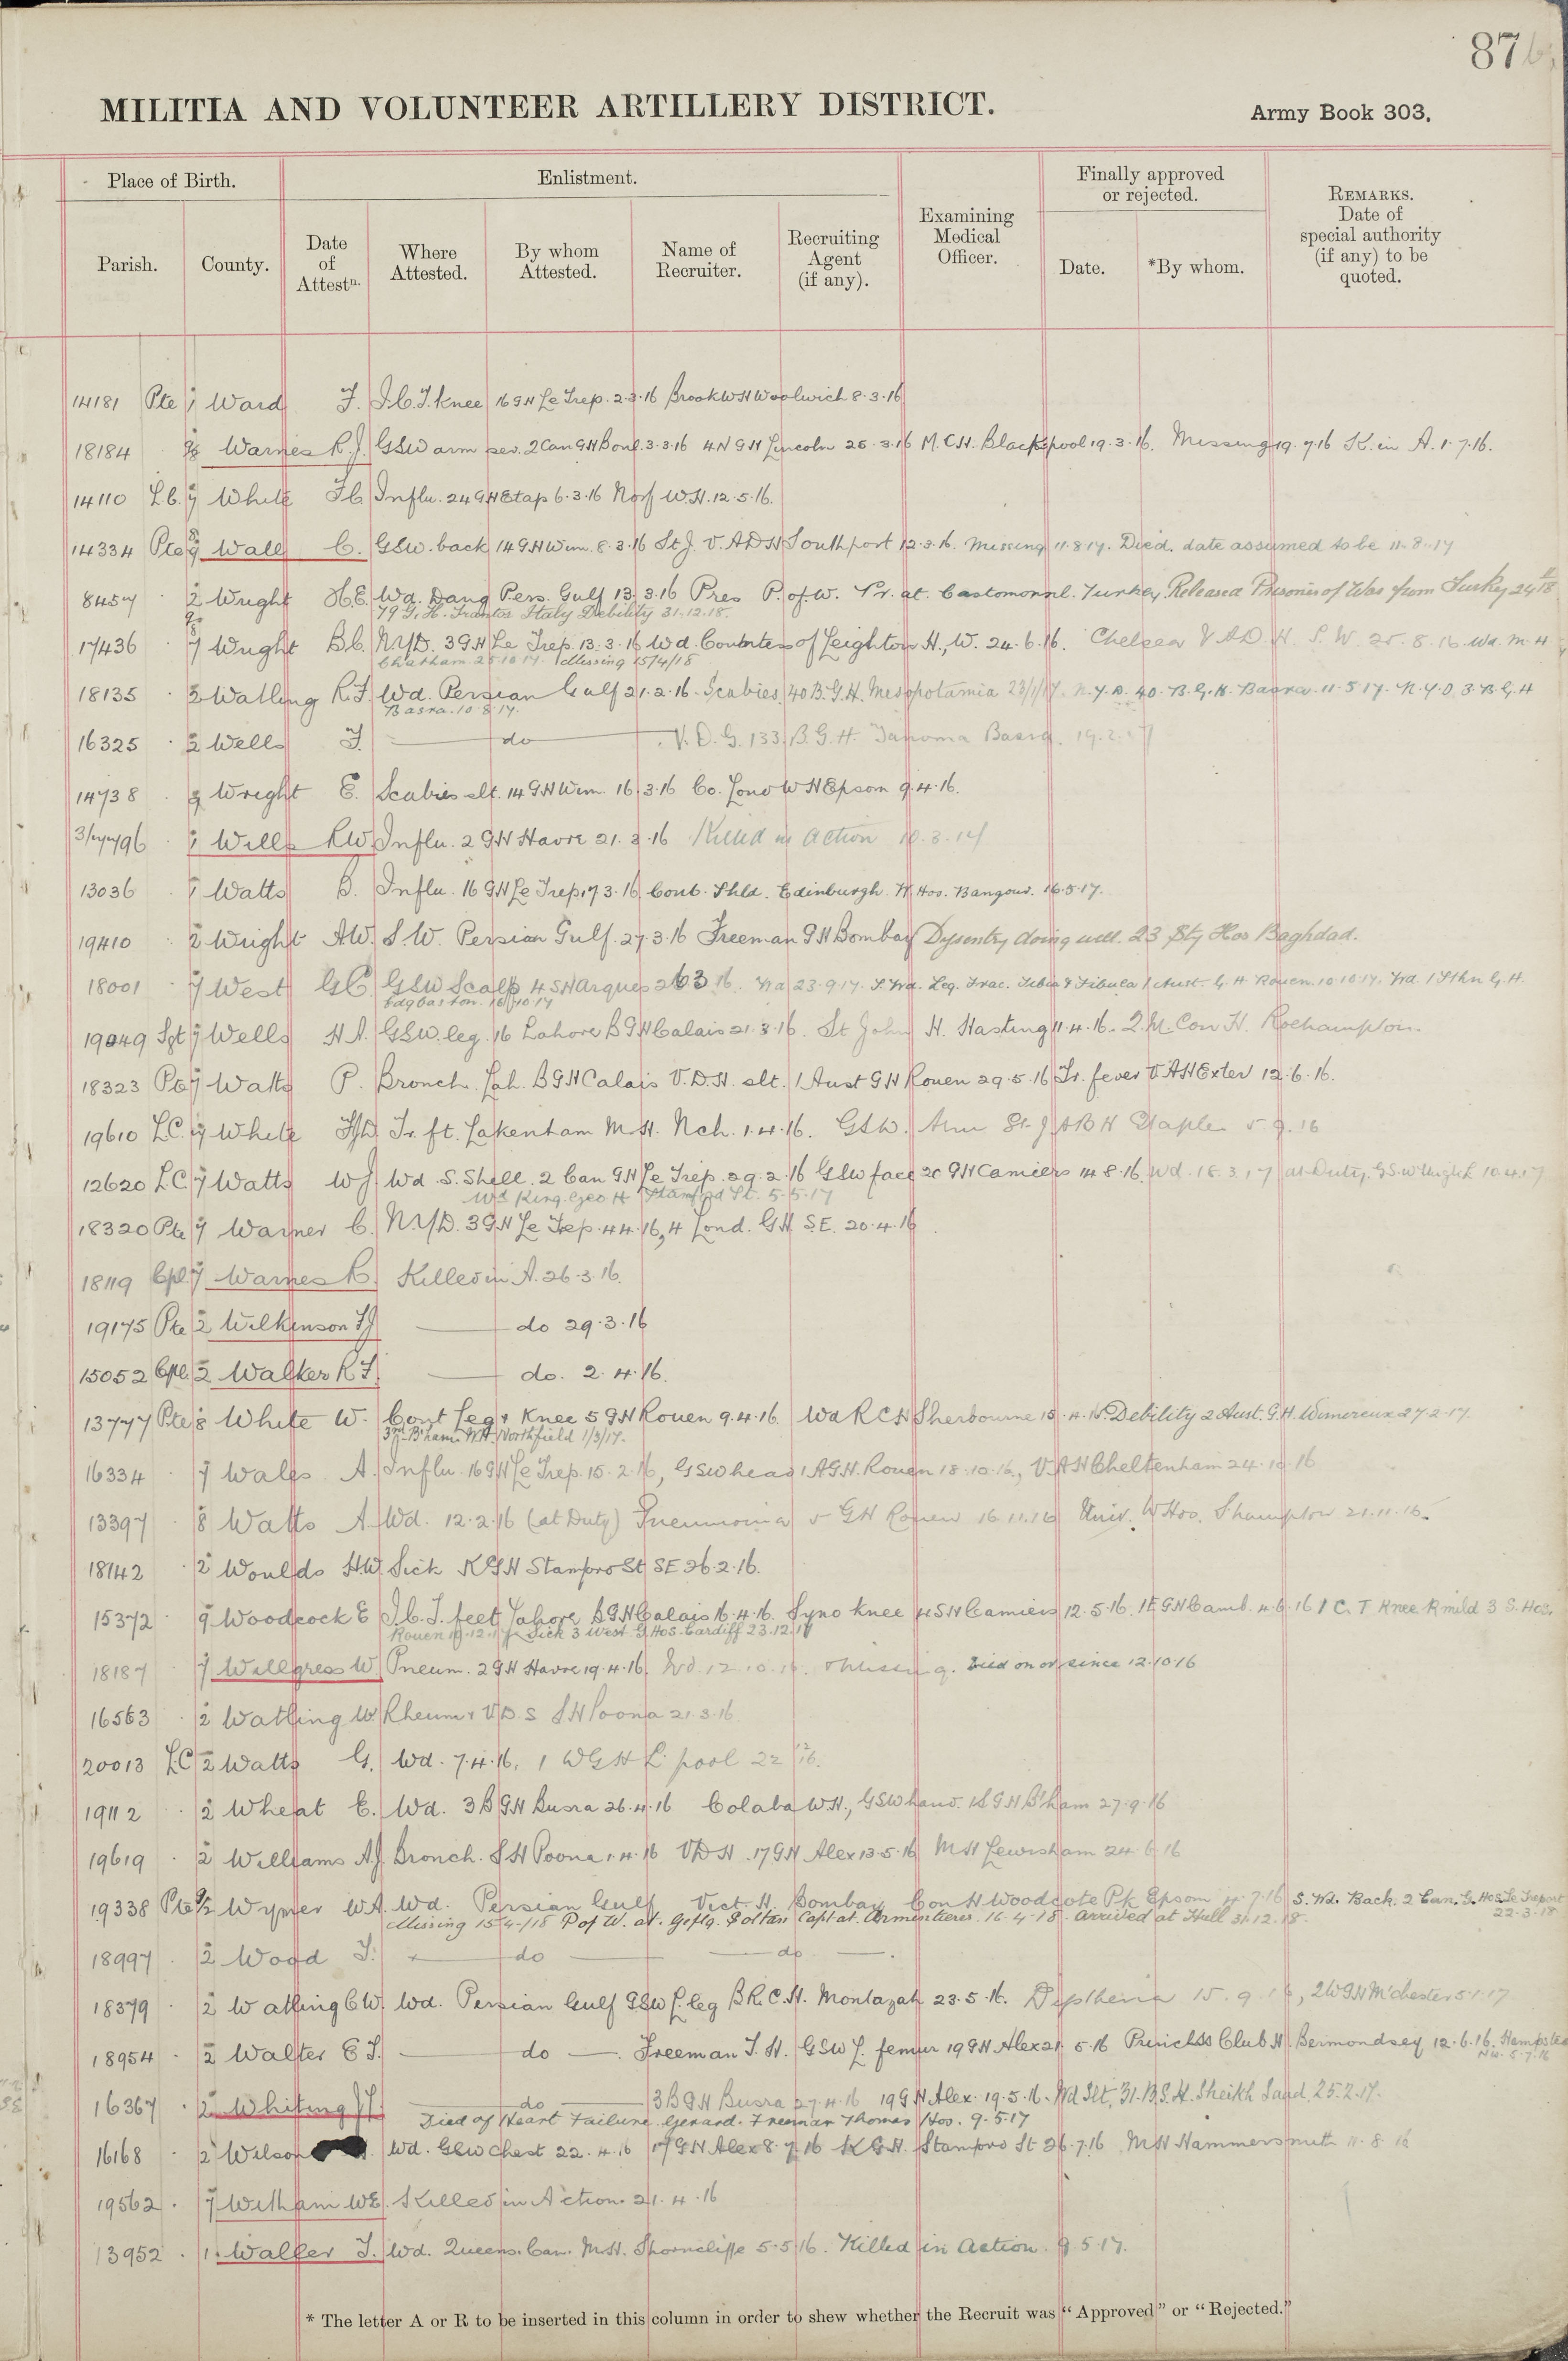 87
MILITIA AND VOLUNTEER ARTILLERY DISTRICT.
Army Book 303.
Place of Birth.
Enlistment.
Finally approved or rejected.
Parish.
County.
Date of Attestn.
Where Attested.
By whom Attested.
Name of Recruiter.
Recruiting Agent (if any).
Examining Medical Officer.
Date.
*By whom.
REMARKS. Date of special authority (if any) to be quoted.
14181 Pte 1 Ward F. I.C.T. Knee 16 GH Le Trep. 2.3.16 Brook WH Woolwich 8.3.16
18184 Warnes R.J. GSW arm sev. 2 Can GH Boul. 3.3.16 4 N GH Lincoln 25.3.16 M.C.H. Blackpool 19.3.16. Missing 19.7.16 K. in A. 1.7.16.
14110 L.C. 7 White Influ. 24 GH Etap 6.3.16 Norf W.H. 12.5.16.
14334 Pte Wall C. GSW. back 14 GH Wim. 8.3.16 St J. V.A.D H Southport 12.3.16. Missing 11.8.17. Died. date assumed to be 11.8.17
8457 2 Wright H.E. Wd. Dang Pers. Gulf 13.3.16 Pres P. of W. Tr. at. Castomonnl. Turkey. Released Prisoner of War from Turkey
79 G.H. Trantos Italy Debility 31.12.18.
17436 7 Wright B.C. NYD. 3 GH Le Trep. 13.3.16 Wd. Countess of Leighton H., W. 24.6.16. Chelsea V AD H. S.W. 25.8.16 Wd. M.H
Chatham 25.10.17 Missing 15/4/18
18135 2 Watling R.J. Wd. Persian Gulf 21.2.16. Scabies 40 B.G.H. Mesopotamia 23/1/17. N.Y.D. 40. B.G.H. Basra. 11.5.17. N.Y.D. 3.B.G.H
Basra. 10.8.17.
16325 2 Wells J. do V.D.G. 133. B.G.H. Tanoma Basra. 19.2.17
14738 Wright E. Scabies slt. 14 GH Wim. 16.3.16 Co. Lond W H Epsom 9.4.16.
1 Wells RW Influ. 2 GH Havre 21.3.16 Killed in action
13036 1 Watts B. Influ. 16 GH Le Trep. 17.3.16 Cont. Shld. Edinburgh. W. Hos. Bangour. 16.5.17.
19410 2 Wright A.W. S.W. Persian Gulf. 27.3.16 Freeman GH Bombay Dysentry doing well. 23 Sty Hos Baghdad.
18001 7 West G.C. GSW Scalp 4 SH Arques 26.3.16. Wd 23.9.17. Leg. Frac. Tibia & Fibula 1 Aust. G.H. Rouen. 10.10.17. Wd. 1 Sthn G.H.
Edgbaston. 16/10/17
19049 Sgt 7 Wells H A. GSW. leg. 16 Lahore B GH Calais 21.3.16. St John H. Hasting 11.4.16. Q.M. Con H. Roehampton.
18323 Pte 7 Watts P. Bronch. Lah. B GH Calais V.D.H. slt. 1 Aust GH Rouen 29.5.16 Tr. fever V.A H Exter 12.6.16.
19610 LC 7 White Tr. ft. Lakenham M H. Nch. 1.4.16. GSW. Arm St. J.A B H Etaples 5.9.16
12620 LC 7 Watts W J Wd. S. Shell. 2 Can GH Le Trep. 29.2.16 GSW face 20 GH Camiers 14.8.16. Wd. 18.3.17 at Duty, GSW thigh L 10.4.17
Wd King Geo H Stamford St. 5.5.17
18320 Pte 7 Warner C. NYD. 3 GH Le Trep. 4.4.16, 4 Lond. GH S.E. 20.4.16
18119 Cpl 7 Warnes R. Killed in A. 26.3.16.
19175 Pte 2 Wilkinson do 29.3.16
15052 Cpl. 2 Walker R J do. 2.4.16.
13777 Pte 8 White W. Cont Leg & Knee 5 GH Rouen 9.4.16. Wd R C H Sherbourne 15.4.16. Debility 2 Aust. G.H. Wimereux 27.2.17.
3rd B'ham. W.H. Northfield 1/3/17.
16334 7 Wales A. Influ. 16 GH Le Trep. 15.2.16, GSW head 1 AGH. Rouen 18.10.16, V.A H Cheltenham 24.10.16
13397 8 Watts A Wd. 12.2.16 (at Duty) Pneumonia 5 GH Rouen 16.11.16 Univ. W Hos. Shampton 21.11.16.
18142 2 Woulds H.W. Sick KGH Stamford St SE 26.2.16.
15372 9 Woodcock E I.C.T. feet Lahore B GH Calais 16.4.16. Syno Knee 4 SH Camiers 12.5.16. 1 E GH Camb. 4.6.16 I C. T Knee R mild 3 S. Hos.
Sick 3 West G Hos. Cardiff 23.12.17
18187 7 Wallgress W. Pneum. 2 GH Havre 19.4.16. Wd. 12.10.16. Missing. Died on or since 12.10.16
16563 2 Watling W. Rheum & V.D.S S H Poona 21.3.16.
20013 LC 2 Watts G. Wd. 7.4.16. 1 W G H L'pool
19112 2 Wheat C. Wd. 3 B GH Busra 26.4.16 Colaba W.H., GSW hand. 1 S GH B'ham 27.9.16
19619 2 Williams A.J. Bronch. S H Poona 1.4.16 VDH. 17 GH Alex 13.5.16 MH Lewisham 24.6.16
19338 Pte 2 Wymer W.A. Wd. Persian Gulf Vict. H. Bombay Con H Woodcote Pk Epsom 4.7.16 S. Wd. Back. 2 Can. G. Hos. Le Treport
22.3.18
Missing 15/4/18 P of W. at. Gefig. Soltau Capt at. Armentieres 16.4.18. arrived at Hull 31.12.18.
18997 2 Wood J. do do
18379 2 Watling C W. Wd. Persian Gulf GSW L. leg B.R.C.H. Montazah 23.5.16. Diptheria 15.9.16, 2 W GH M'chester 5.1.17
18954 2 Walter E J. do Freeman T. H. GSW L. femur 19 GH Alex 21.5.16 Princess Club H Bermondsey 12.6.16. Hampstea
NW. 5.7.16
16367 2 Whiting do 3 B GH Busra 27.4.16 19 GH Alex. 19.5.16. Wd Slt, 31.B.S.H. Sheikh Saad. 25.2.17.
Died of Heart Failure. Gerard. Freeman Thomas Hos. 9.5.17
16168 2 Wilson Wd. GSW Chest 22.4.16 17 GH Alex 8.7.16 K G H. Stamford St 26.7.16 MH Hammersmith 11.8.16
19562 7 Witham WE Killed in Action. 21.4.16
13952 1 Waller J. Wd. Queens. Can. M.H. Shorncliffe 5.5.16. Killed in action. 9.5.17.
* The letter A or R to be inserted in this column in order to shew whether the Recruit was “Approved” or “Rejected.”